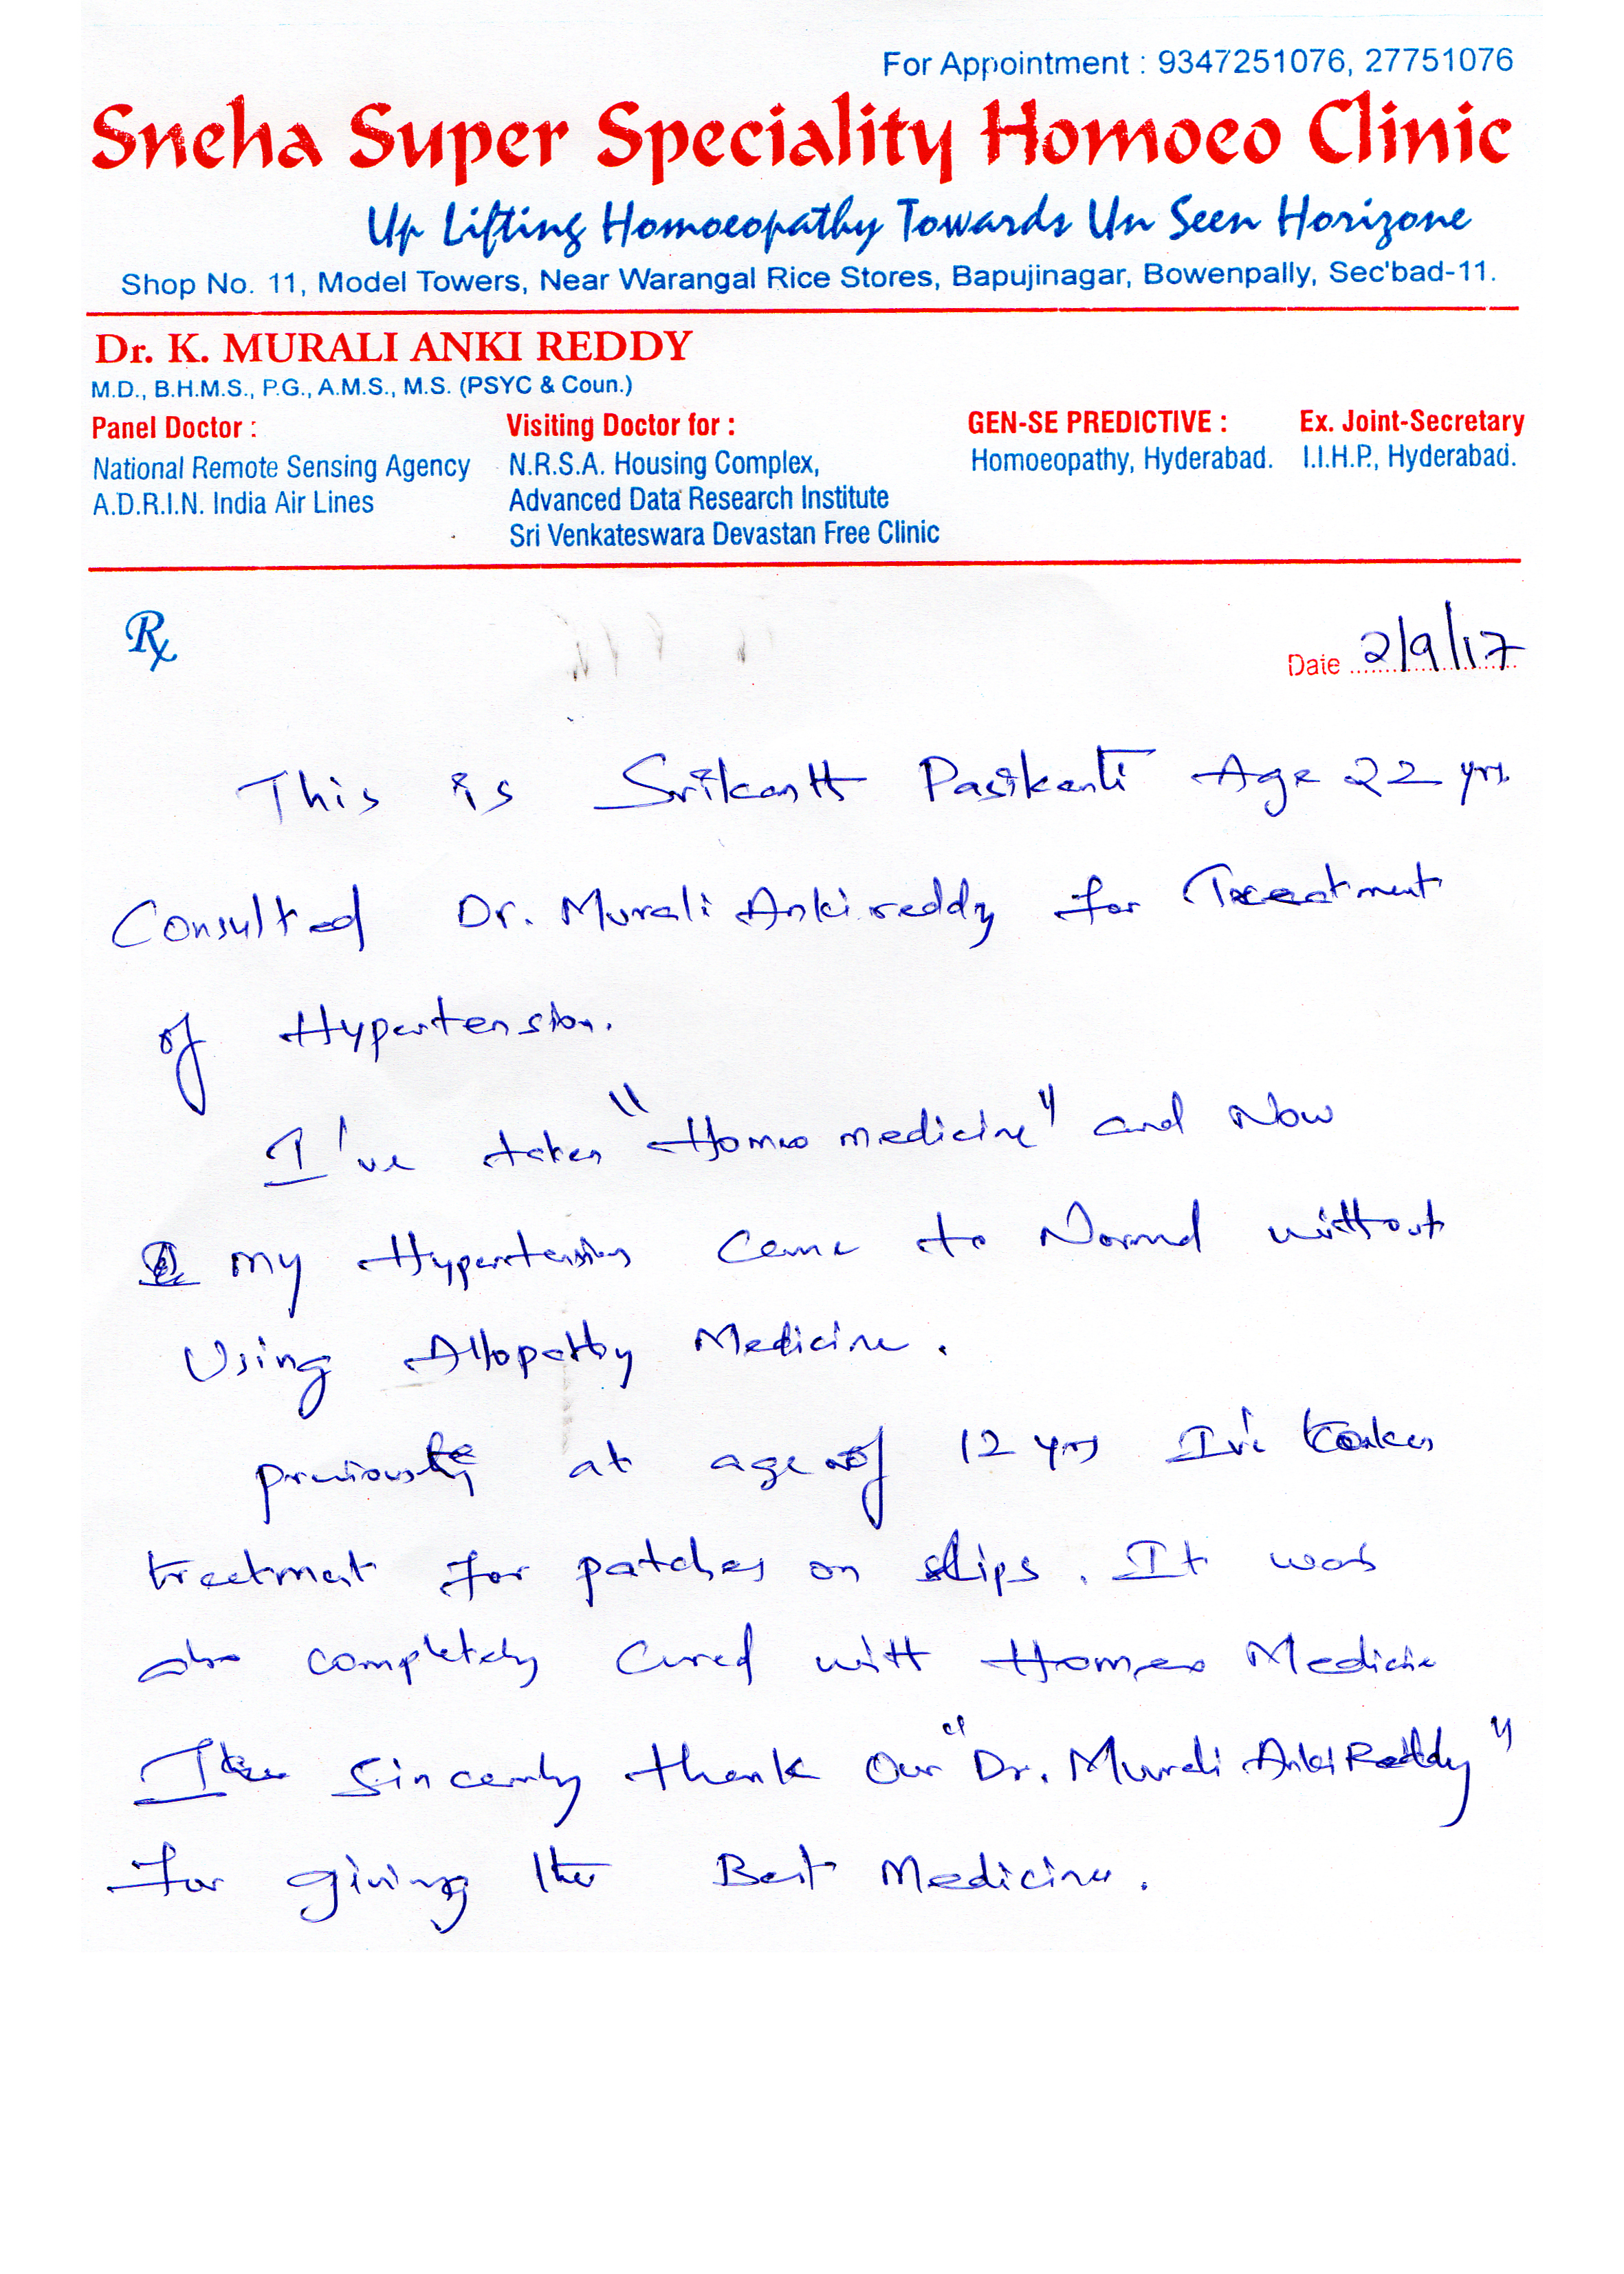 For Appointment : 9347251076, 27751076
Sneha Super Speciality Homoeo Clinic
Up Lifting Homoeopathy Towards Un Seen Horizone
Shop No. 11, Model Towers, Near Warangal Rice Stores, Bapujinagar, Bowenpally, Sec'bad-11.
Dr. K. MURALI ANKI REDDY
M.D., B.H.M.S., P.G., A.M.S., M.S. (PSYC & Coun.)
Panel Doctor :
National Remote Sensing Agency
A.D.R.I.N. India Air Lines
Visiting Doctor for :
N.R.S.A. Housing Complex,
Advanced Data Research Institute
Sri Venkateswara Devastan Free Clinic
GEN-SE PREDICTIVE :
Homoeopathy, Hyderabad.
Ex. Joint-Secretary
I.I.H.P., Hyderabad.
Rx
Date 2/9/17
This is Srikanth Pasikanti Age 22 yrs.
Consulted Dr. Murali Ankireddy for Treatment
of Hypertension.
I've taken "Homeo medicine" and Now
my Hypertension came to Normal without
Using Allopathy Medicine.
previously at age of 12 yrs I've taken
treatment for patches on lips. It was
also completely cured with Homeo Medicine
I sincerly thank Our "Dr. Murali AnkiReddy"
for giving the Best Medicine.